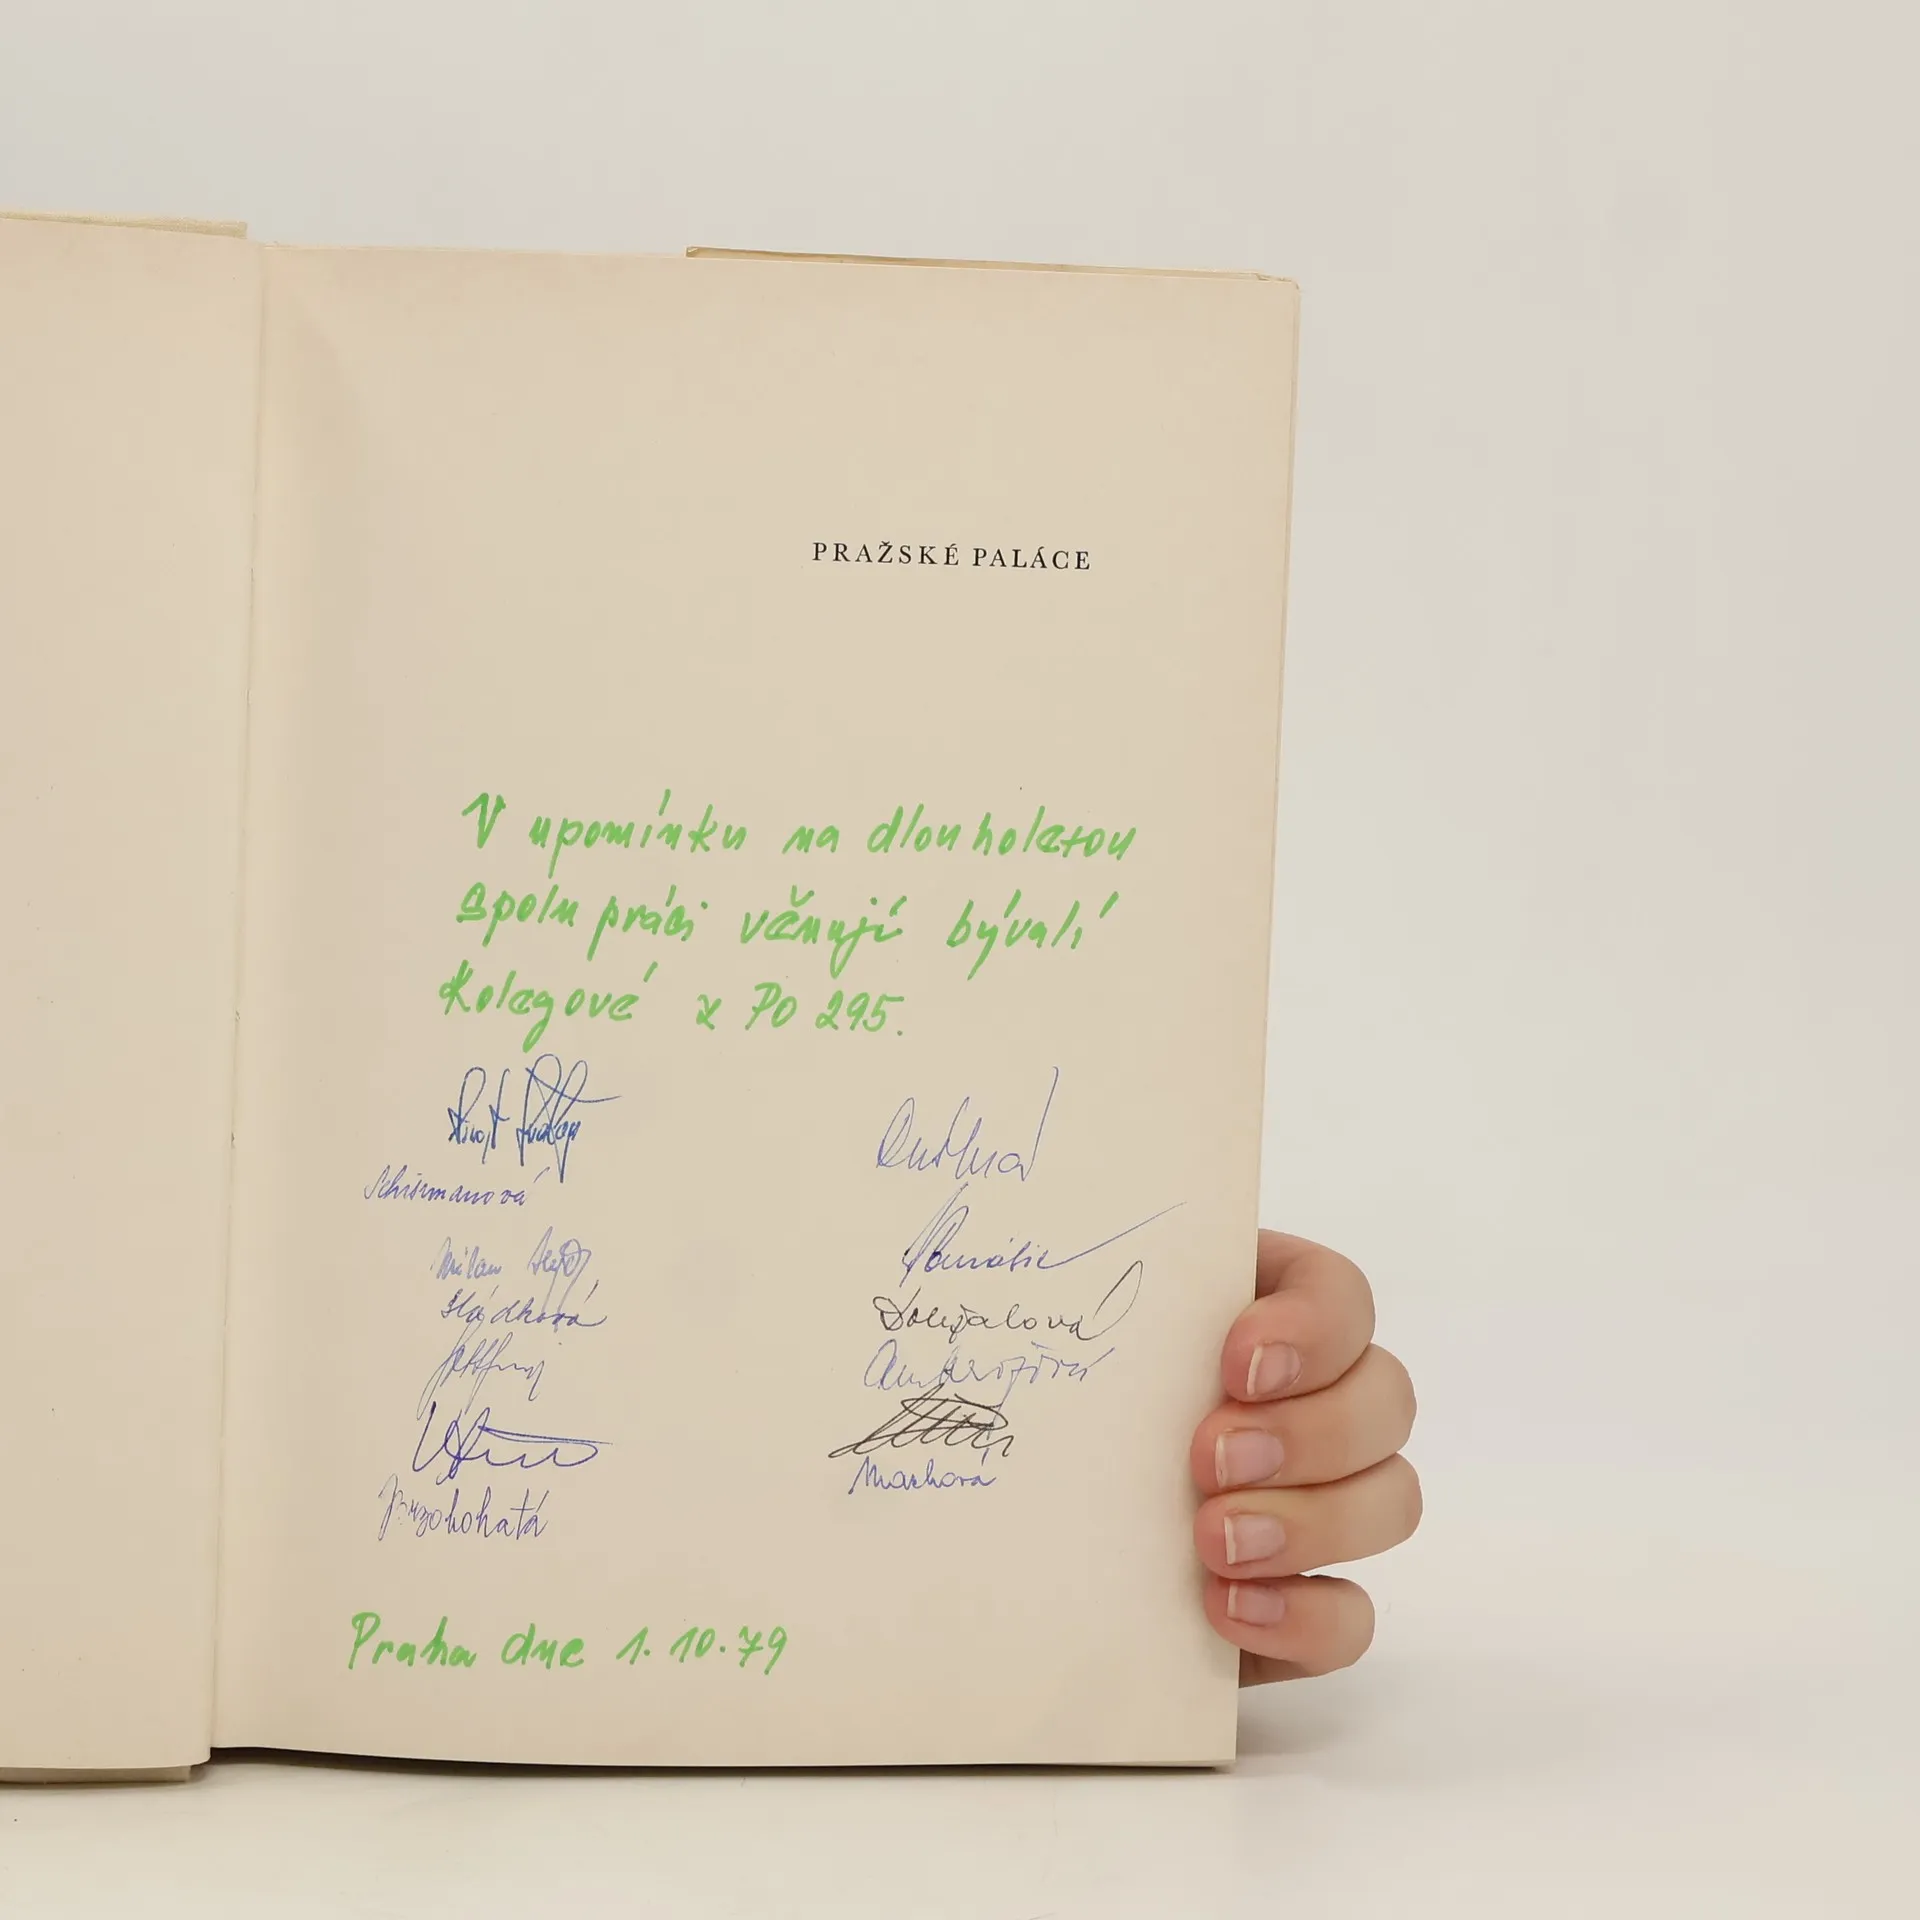 PRAŽSKÉ PALÁCE
V upomínku na dlouholetou
spolupráci věnují bývalí
Kolegové z PO 295.
Schismanová
Milan
Sládková
Doležalová
Ambrožová
Machová
Brzobohatá
Praha dne 1. 10. 79